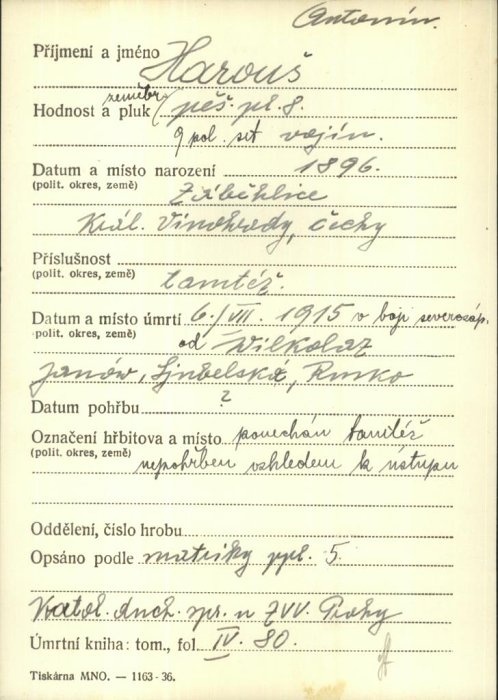 Antonín.
Příjmení a jméno Harouš
zeměbr.
Hodnost a pluk pěš. pl. 8.
9 pol. set vojín.
Datum a místo narození 1896.
(polit. okres, země) Záběhlice
Král. Vinohrady, Čechy
Příslušnost
(polit. okres, země) tamtéž.
Datum a místo úmrtí 6./VII. 1915 v boji severozáp.
polit. okres, země) od Wilkolaz
Janów, Ljubelská, Rusko
Datum pohřbu ?
Označení hřbitova a místo ponechán tamtéž
(polit. okres, země) nepohřben vzhledem k ústupu
Oddělení, číslo hrobu
Opsáno podle matriky ppl. 5.
Katol. duch. spr. u ZVV. Prahy
Úmrtní kniha: tom., fol. IV. 80.
Tiskárna MNO. — 1163-36.